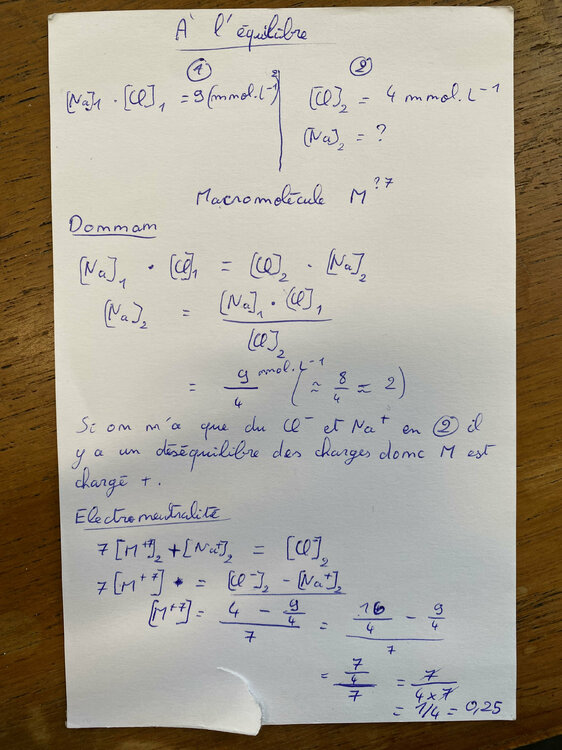 À l'équilibre
① ②
[Na]₁ · [Cl]₁ = 9 (mmol.L⁻¹)² [Cl]₂ = 4 mmol.L⁻¹
[Na]₂ = ?
Macromolécule M^{?7}
Donnan
[Na]₁ · [Cl]₁ = [Cl]₂ · [Na]₂
[Na]₂ = [Na]₁ · [Cl]₁ / [Cl]₂
= 9/4 mmol.L⁻¹ (≈ 8/4 ≈ 2)
Si on n'a que du Cl⁻ et Na⁺ en ② il
y a un déséquilibre des charges donc M est
chargé +.
Electroneutralité
7 [M⁺⁷]₂ + [Na⁺]₂ = [Cl⁻]₂
7 [M⁺⁷] = [Cl⁻]₂ - [Na⁺]₂
[M⁺⁷] = (4 - 9/4) / 7 = (16/4 - 9/4) / 7
= (7/4) / 7 = 7 / (4 x 7)
= 1/4 = 0,25